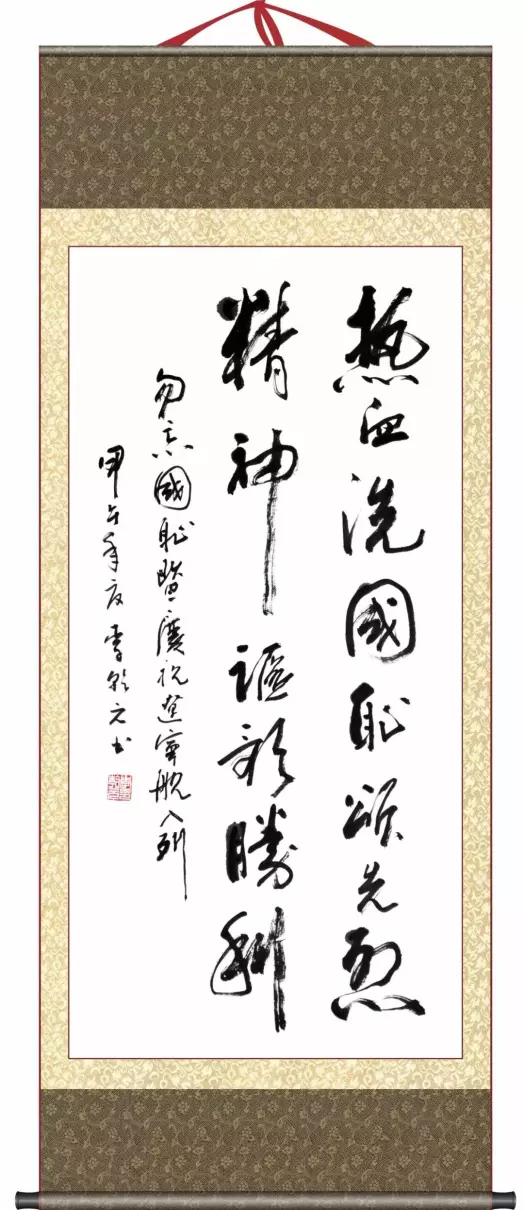 熱血洗國恥頌先烈
精神謳歌勝利
勿忘國恥暨慶祝遼寧艦入列
甲午年夏 李 元書